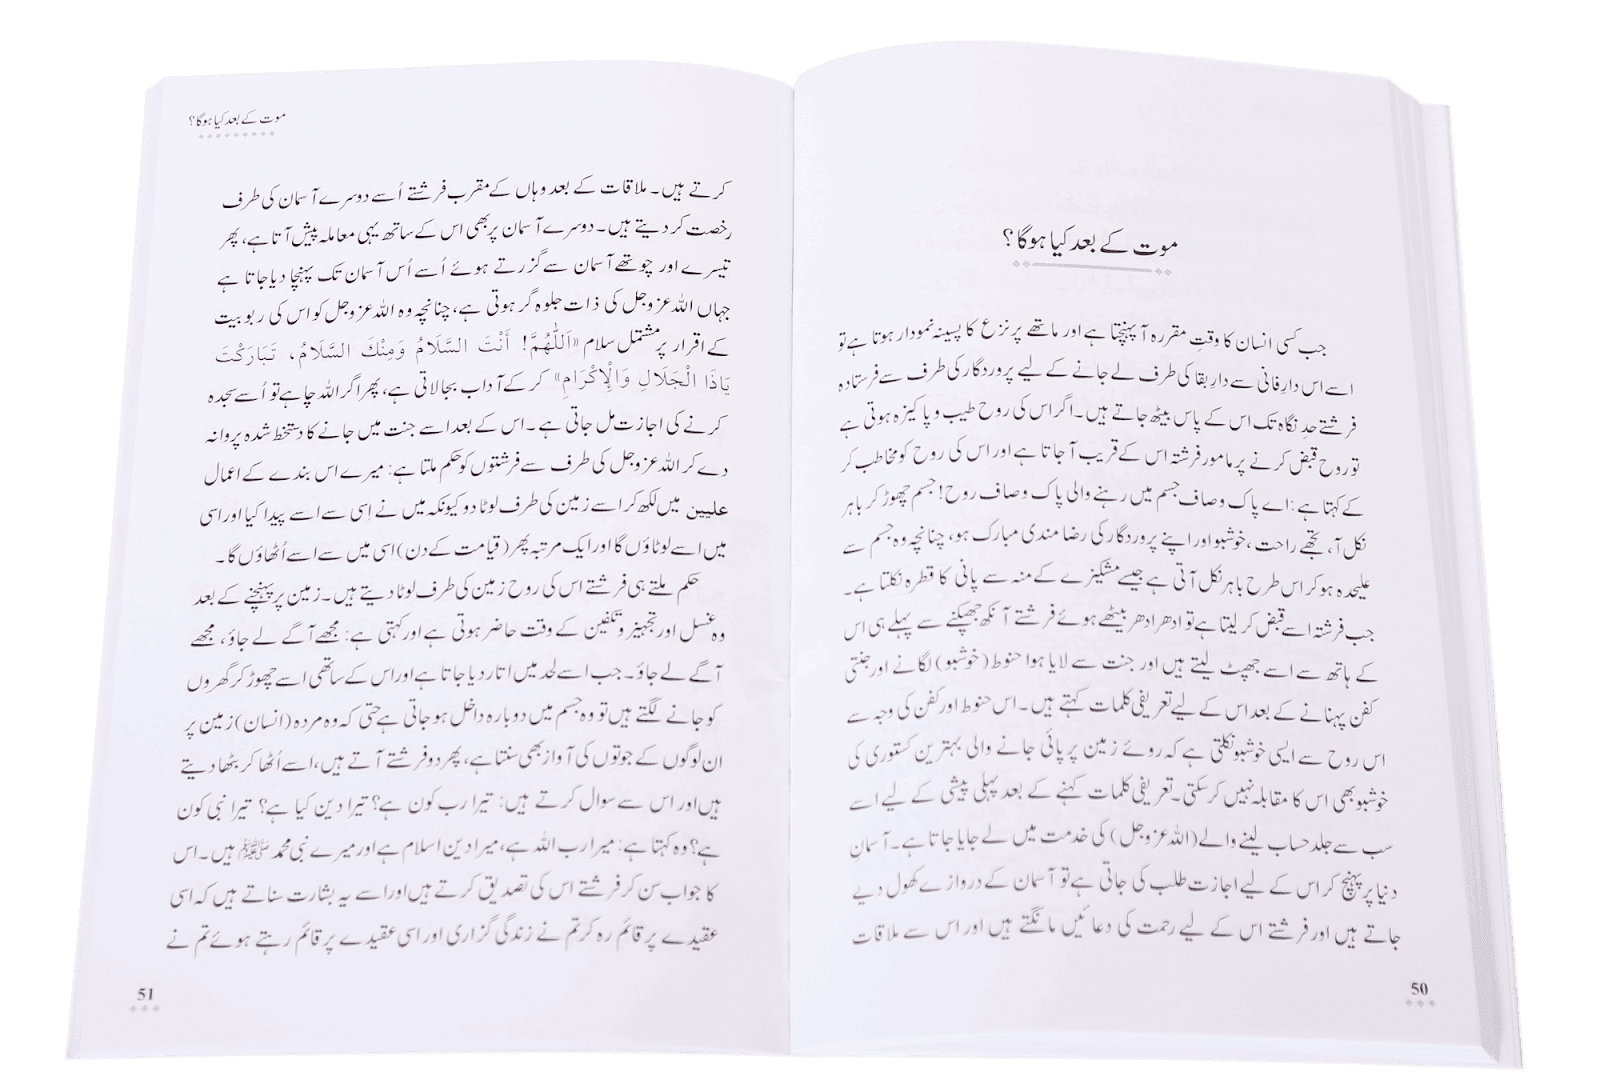 موت کے بعد کیا ہوگا؟
جب کسی انسان کا وقتِ مقررہ آ پہنچتا ہے اور ماتھے پر نزع کا پسینہ نمودار ہوتا ہے تو
اسے اس دارِ فانی سے دارِ بقا کی طرف لے جانے کے لیے پروردگار کی طرف سے فرستادہ
فرشتے حدِ نگاہ تک اس کے پاس بیٹھ جاتے ہیں۔ اگر اس کی روح طیب و پاکیزہ ہوتی ہے
تو روح قبض کرنے پر مامور فرشتہ اس کے قریب آ جاتا ہے اور اس کی روح کو مخاطب کر
کے کہتا ہے: اے پاک وصاف جسم میں رہنے والی پاک وصاف روح! جسم چھوڑ کر باہر
نکل آ، تجھے راحت، خوشبو اور اپنے پروردگار کی رضا مندی مبارک ہو، چنانچہ وہ جسم سے
علیحدہ ہو کر اس طرح باہر نکل آتی ہے جیسے مشکیزے کے منہ سے پانی کا قطرہ نکلتا ہے۔
جب فرشتہ اسے قبض کر لیتا ہے تو ادھر ادھر بیٹھے ہوئے فرشتے آنکھ جھپکنے سے پہلے ہی اس
کے ہاتھ سے اسے جھپٹ لیتے ہیں اور جنت سے لایا ہوا حنوط (خوشبو) لگانے اور جنتی
کفن پہنانے کے بعد اس کے لیے تعریفی کلمات کہتے ہیں۔ اس حنوط اور کفن کی وجہ سے
اس روح سے ایسی خوشبو نکلتی ہے کہ روئے زمین پر پائی جانے والی بہترین کستوری کی
خوشبو بھی اس کا مقابلہ نہیں کر سکتی۔ تعریفی کلمات کہنے کے بعد پہلی پیشی کے لیے اسے
سب سے جلد حساب لینے والے (اللہ عزوجل) کی خدمت میں لے جایا جاتا ہے۔ آسمانِ
دنیا پر پہنچ کر اس کے لیے اجازت طلب کی جاتی ہے تو آسمان کے دروازے کھول دیے
جاتے ہیں اور فرشتے اس کے لیے رحمت کی دعائیں مانگتے ہیں اور اس سے ملاقات
50
موت کے بعد کیا ہوگا؟
کرتے ہیں۔ ملاقات کے بعد وہاں کے مقرب فرشتے اُسے دوسرے آسمان کی طرف
رخصت کر دیتے ہیں۔ دوسرے آسمان پر بھی اس کے ساتھ یہی معاملہ پیش آتا ہے، پھر
تیسرے اور چوتھے آسمان سے گزرتے ہوئے اُسے اُس آسمان تک پہنچا دیا جاتا ہے
جہاں اللہ عزوجل کی ذات جلوہ گر ہوتی ہے، چنانچہ وہ اللہ عزوجل کو اس کی ربوبیت
کے اقرار پر مشتمل سلام «اَللّٰهُمَّ! أَنْتَ السَّلَامُ وَمِنْكَ السَّلَامُ، تَبَارَكْتَ
يَاذَا الْجَلَالِ وَالْإِكْرَامِ» کر کے آداب بجا لاتی ہے، پھر اگر اللہ چاہے تو اُسے سجدہ
کرنے کی اجازت مل جاتی ہے۔ اس کے بعد اسے جنت میں جانے کا دستخط شدہ پروانہ
دے کر اللہ عزوجل کی طرف سے فرشتوں کو حکم ملتا ہے: میرے اس بندے کے اعمال
علیین میں لکھ کر اسے زمین کی طرف لوٹا دو کیونکہ میں نے اِسی سے اسے پیدا کیا اور اسی
میں اسے لوٹاؤں گا اور ایک مرتبہ پھر (قیامت کے دن) اسی میں سے اسے اُٹھاؤں گا۔
حکم ملتے ہی فرشتے اس کی روح زمین کی طرف لوٹا دیتے ہیں۔ زمین پر پہنچنے کے بعد
وہ غسل اور تجہیز و تکفین کے وقت حاضر ہوتی ہے اور کہتی ہے: مجھے آگے لے جاؤ، مجھے
آگے لے جاؤ۔ جب اسے لحد میں اتار دیا جاتا ہے اور اس کے ساتھی اسے چھوڑ کر گھروں
کو جانے لگتے ہیں تو وہ جسم میں دوبارہ داخل ہو جاتی ہے حتی کہ وہ مردہ (انسان) زمین پر
ان لوگوں کے جوتوں کی آواز بھی سنتا ہے، پھر دو فرشتے آتے ہیں، اسے اُٹھا کر بٹھا دیتے
ہیں اور اس سے سوال کرتے ہیں: تیرا رب کون ہے؟ تیرا دین کیا ہے؟ تیرا نبی کون
ہے؟ وہ کہتا ہے: میرا رب اللہ ہے، میرا دین اسلام ہے اور میرے نبی محمد ﷺ ہیں۔ اس
کا جواب سن کر فرشتے اس کی تصدیق کرتے ہیں اور اسے یہ بشارت سناتے ہیں کہ اسی
عقیدے پر قائم رہ کر تم نے زندگی گزاری اور اسی عقیدے پر قائم رہتے ہوئے تم نے
51